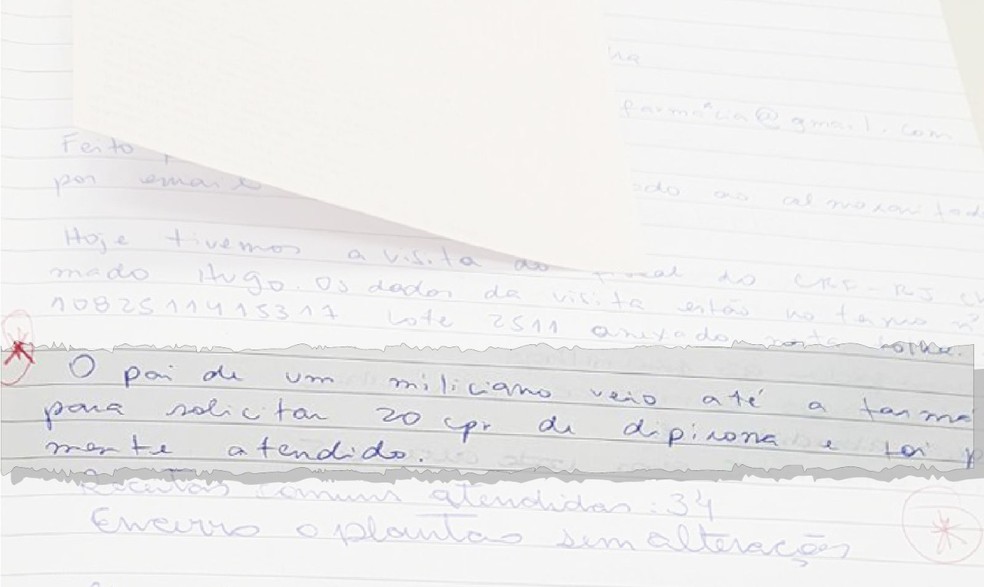 farmácia@gmail.com
Feito
por email ado ao almoxarifad
Hoje tivemos a visita do fiscal do CRF-RJ ch
mado Hugo. Os dados da visita estão no termo nº
1082511415317 Lote 2511 anexado nesta folha.
O pai de um miliciano veio até a farmá
para solicitar 20 cpr de dipirona e foi p
mente atendido.
Receitas comuns atendidas: 34
Encerro o plantão sem alterações